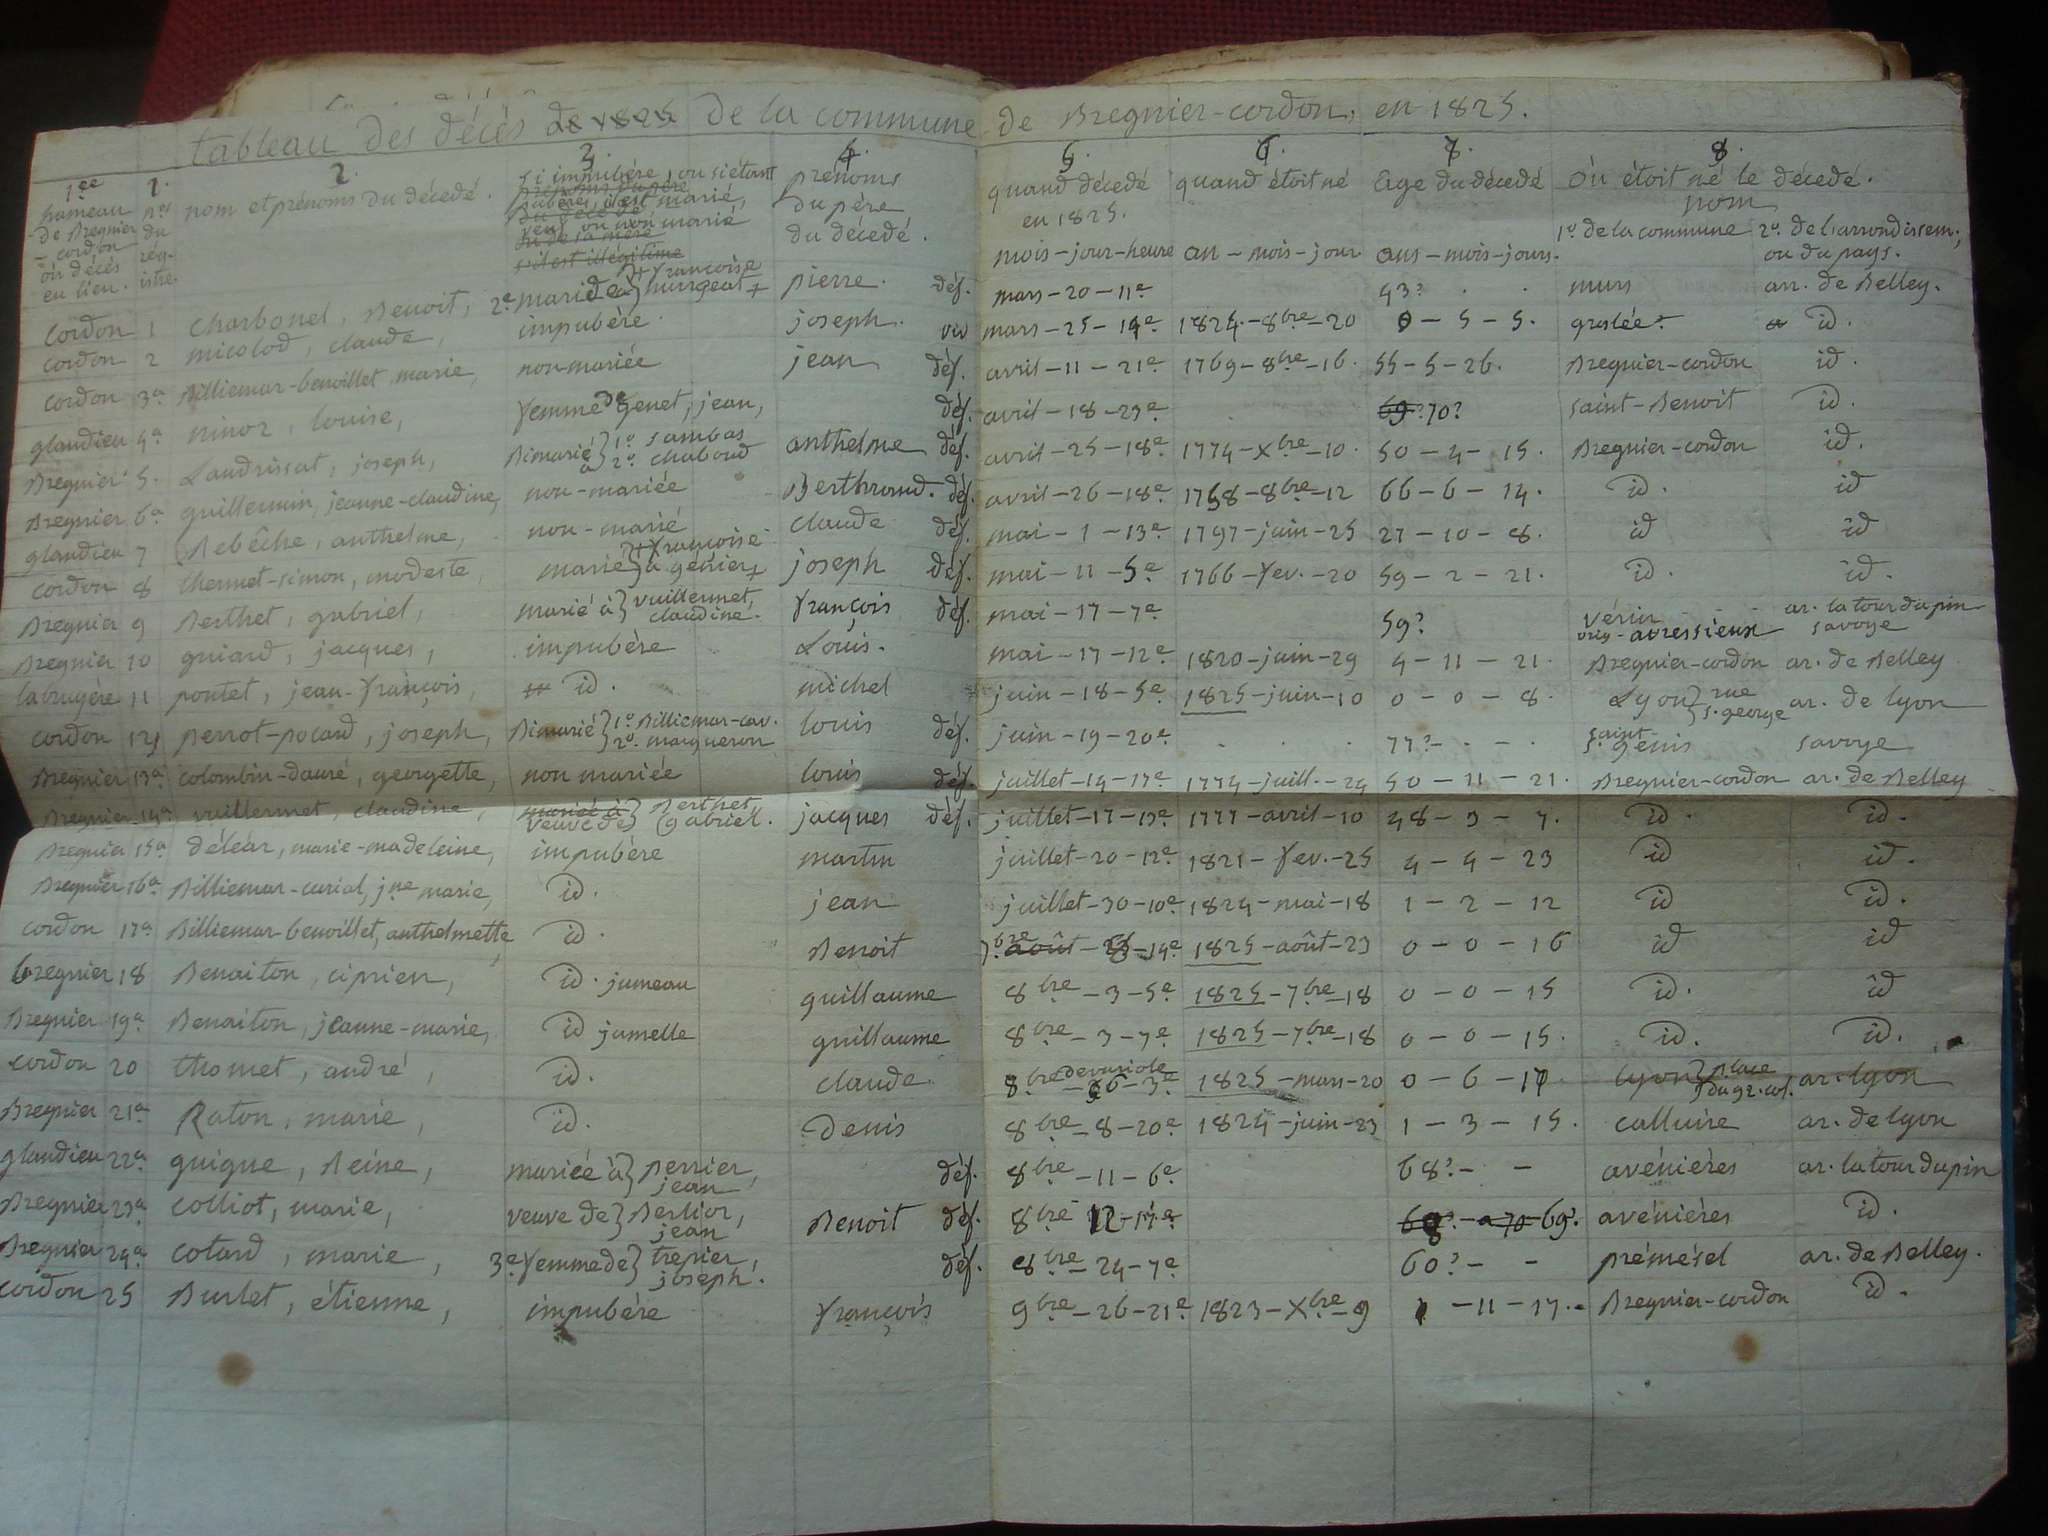 tableau des décès de 1825 de la commune de Bregnier-cordon, en 1825.
1ee 1. 2. 3. 4. 5. 6. 7. 8.
hameau de Bregnier-cordon où décès eu lieu. nos du régistre. nom et prénoms du décedé. si impubère, ou si étant pubère, il est marié, veuf ou non marié prénoms du père du décedé. quand décedé en 1825. mois-jour-heure quand étoit né an-mois-jour age du décedé ans-mois-jours. où étoit né le décedé. nom 1º de la commune 2º de l'arrondissem; ou du pays.
prénoms du père du décedé ou de sa mère s'il est illégitime
cordon 1 charbonel, Benoit, 2e marié à françoise pierre. déf. mars-20-11e 43? . . murs arr. de Belley.
cordon 2 micolod, claude, impubère. joseph. viv mars-25-14e 1824-8bre-20 0-5-5. groslée. id.
cordon 3a Billiemar-benoillet marie, non-mariée jean déf. avril-11-21e 1769-8bre-16. 55-5-26. Bregnier-cordon id.
glandieu 4a ninoz, louise, femme de genet, jean, déf. avril-18-23e 69? 70? saint-Benoit id.
Bregnier 5. Laudrissat, joseph, Bimarié à 1º sambas 2º chaboud anthelme déf. avril-25-18e 1774-Xbre-10. 50-4-15. Bregnier-cordon id.
Bregnier 6a guillermin, jeanne-claudine, non-mariée Berthrand. déf. avril-26-18e 1758-8bre-12 66-6-14. id. id
glandieu 7 Rebêche, anthelme, non-marié claude déf. mai-1-13e 1797-juin-25 27-10-8. id id
cordon 8 thermet-simon, modeste, marié à françoise genier joseph déf. mai-11-5e 1766-fev.-20 59-2-21. id. id.
Bregnier 9 Berthet, gabriel, marié à vuillermet, claudine. françois déf. mai-17-7e 59? vérin orig-avressieux ar. latourdupin savoye
Bregnier 10 guiard, jacques, impubère Louis. mai-17-12e 1820-juin-29 4-11-21. Bregnier-cordon ar. de Belley
labruyère 11 pontet, jean-françois, id. michel juin-18-5e 1825-juin-10 0-0-8. Lyon rue s. george ar. de lyon
cordon 12 perrot-pocard, joseph, Bimarié 1º Billiemar-cav. 2º maigneron louis déf. juin-19-20e . . . 77?-.-. saint-genis savoye
Bregnier 13a colombin-dauré, georgette, non mariée louis déf. juillet-14-17e 1774-juill.-24 50-11-21. Bregnier-cordon ar. de Belley
Bregnier 14a vuillermet, claudine, mariée à veuve de Berthet, gabriel. jacques déf. juillet-17-13e 1777-avril-10 48-3-7. id. id.
Bregnier 15a déléar, marie-madeleine, impubère martin juillet-20-12e 1821-fev.-25 4-4-23 id id.
Bregnier 16a Billiemar-curial, jne marie, id. jean juillet-30-10e 1824-mai-18 1-2-12 id id.
cordon 17a Billiemar-benoillet, anthelmette, id. Benoit 7bre août-14e 1825-août-23 0-0-16 id id
bregnier 18 Benaiton, ciprien, id. jumeau guillaume 8bre-3-5e 1825-7bre-18 0-0-15 id. id
Bregnier 19a Benaiton, jeanne-marie, id jumelle guillaume 8bre-3-7e 1825-7bre-18 0-0-15. id. id.
cordon 20 thomet, andré, id. claude 8bre-6-3e de variole 1825-mars-20 0-6-17. lyon place ar. lyon
Bregnier 21a Raton, marie, id. Denis 8bre-8-20e 1824-juin-23 1-3-15. calluire ar. de lyon
glandieu 22a guigue, Reine, mariée à perrier, jean déf. 8bre-11-6e 68?-- avénières ar. latourdupin
Bregnier 23a colliot, marie, veuve de Berlior, jean Benoit déf. 8bre 12-17e 68?-a 70-69?. avénières id.
Bregnier 24a cotard, marie, 3e femme de trepier, joseph. déf. 8bre-24-7e 60?-- prémésel ar. de Belley.
cordon 25 Burlet, étienne, impubère françois 9bre-26-21e 1823-Xbre-9 1-11-17. Bregnier-cordon id.